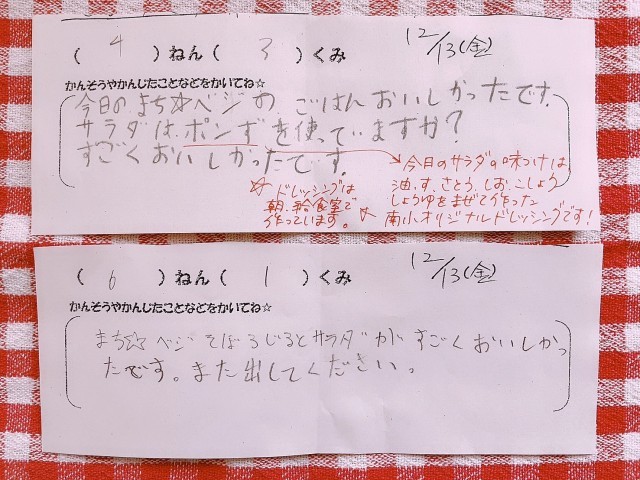 (4)ねん(3)くみ
12/13(金)
かんそうやかんじたことなどをかいてね☆
今日のまち☆ベジの ごはんおいしかったです。
サラダは、ポンずを使っていますか?
すごくおいしかったです。
→今日のサラダの味つけは、
油、す、さとう、しお、こしょう
しょうゆをまぜて作った
南小オリジナルドレッシングです!
☆ドレッシングは
朝、給食室で
作っています。☆
(6)ねん(1)くみ
12/13(金)
かんそうやかんじたことなどをかいてね☆
ベジそぼろじるとサラダがすごくおいしかっ
たです。また出してください。